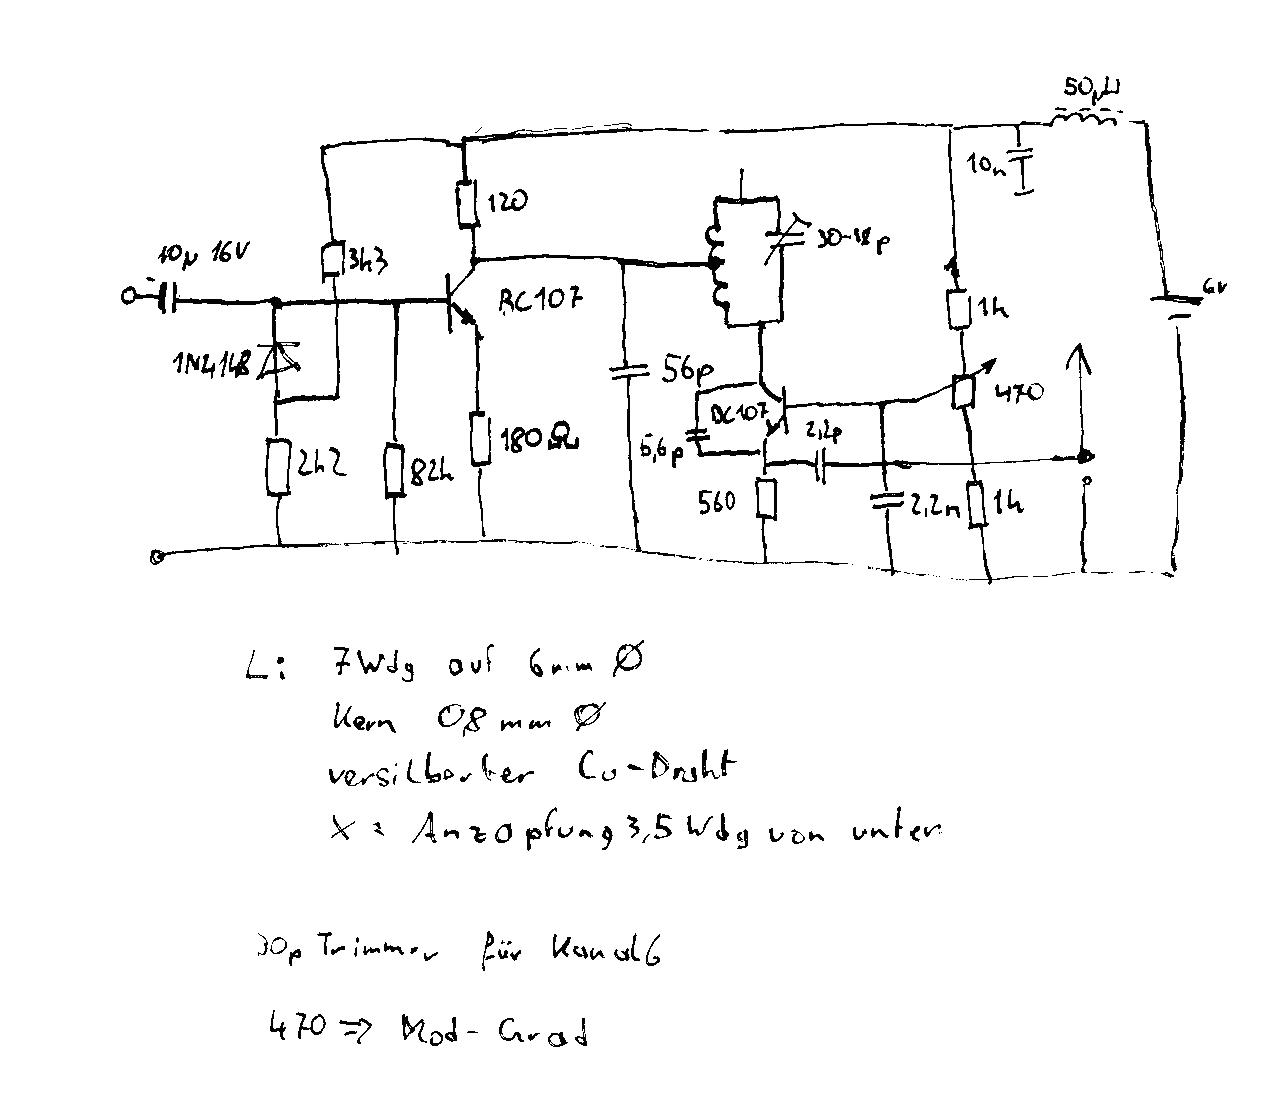 50µH
10n
120
10µ 16V
3k3
30-18p
BC107
1k
6V
1N4148
56p
BC107
470
2,2p
5,6p
180Ω
2k2
82k
560
2,2n
1k
L: 7Wdg auf 6mm Ø
Kern 0,8 mm Ø
versilberter Cu-Draht
X = Anzapfung 3,5 Wdg von unten
30p Trimmer für Kanal 6
470 => Mod-Grad